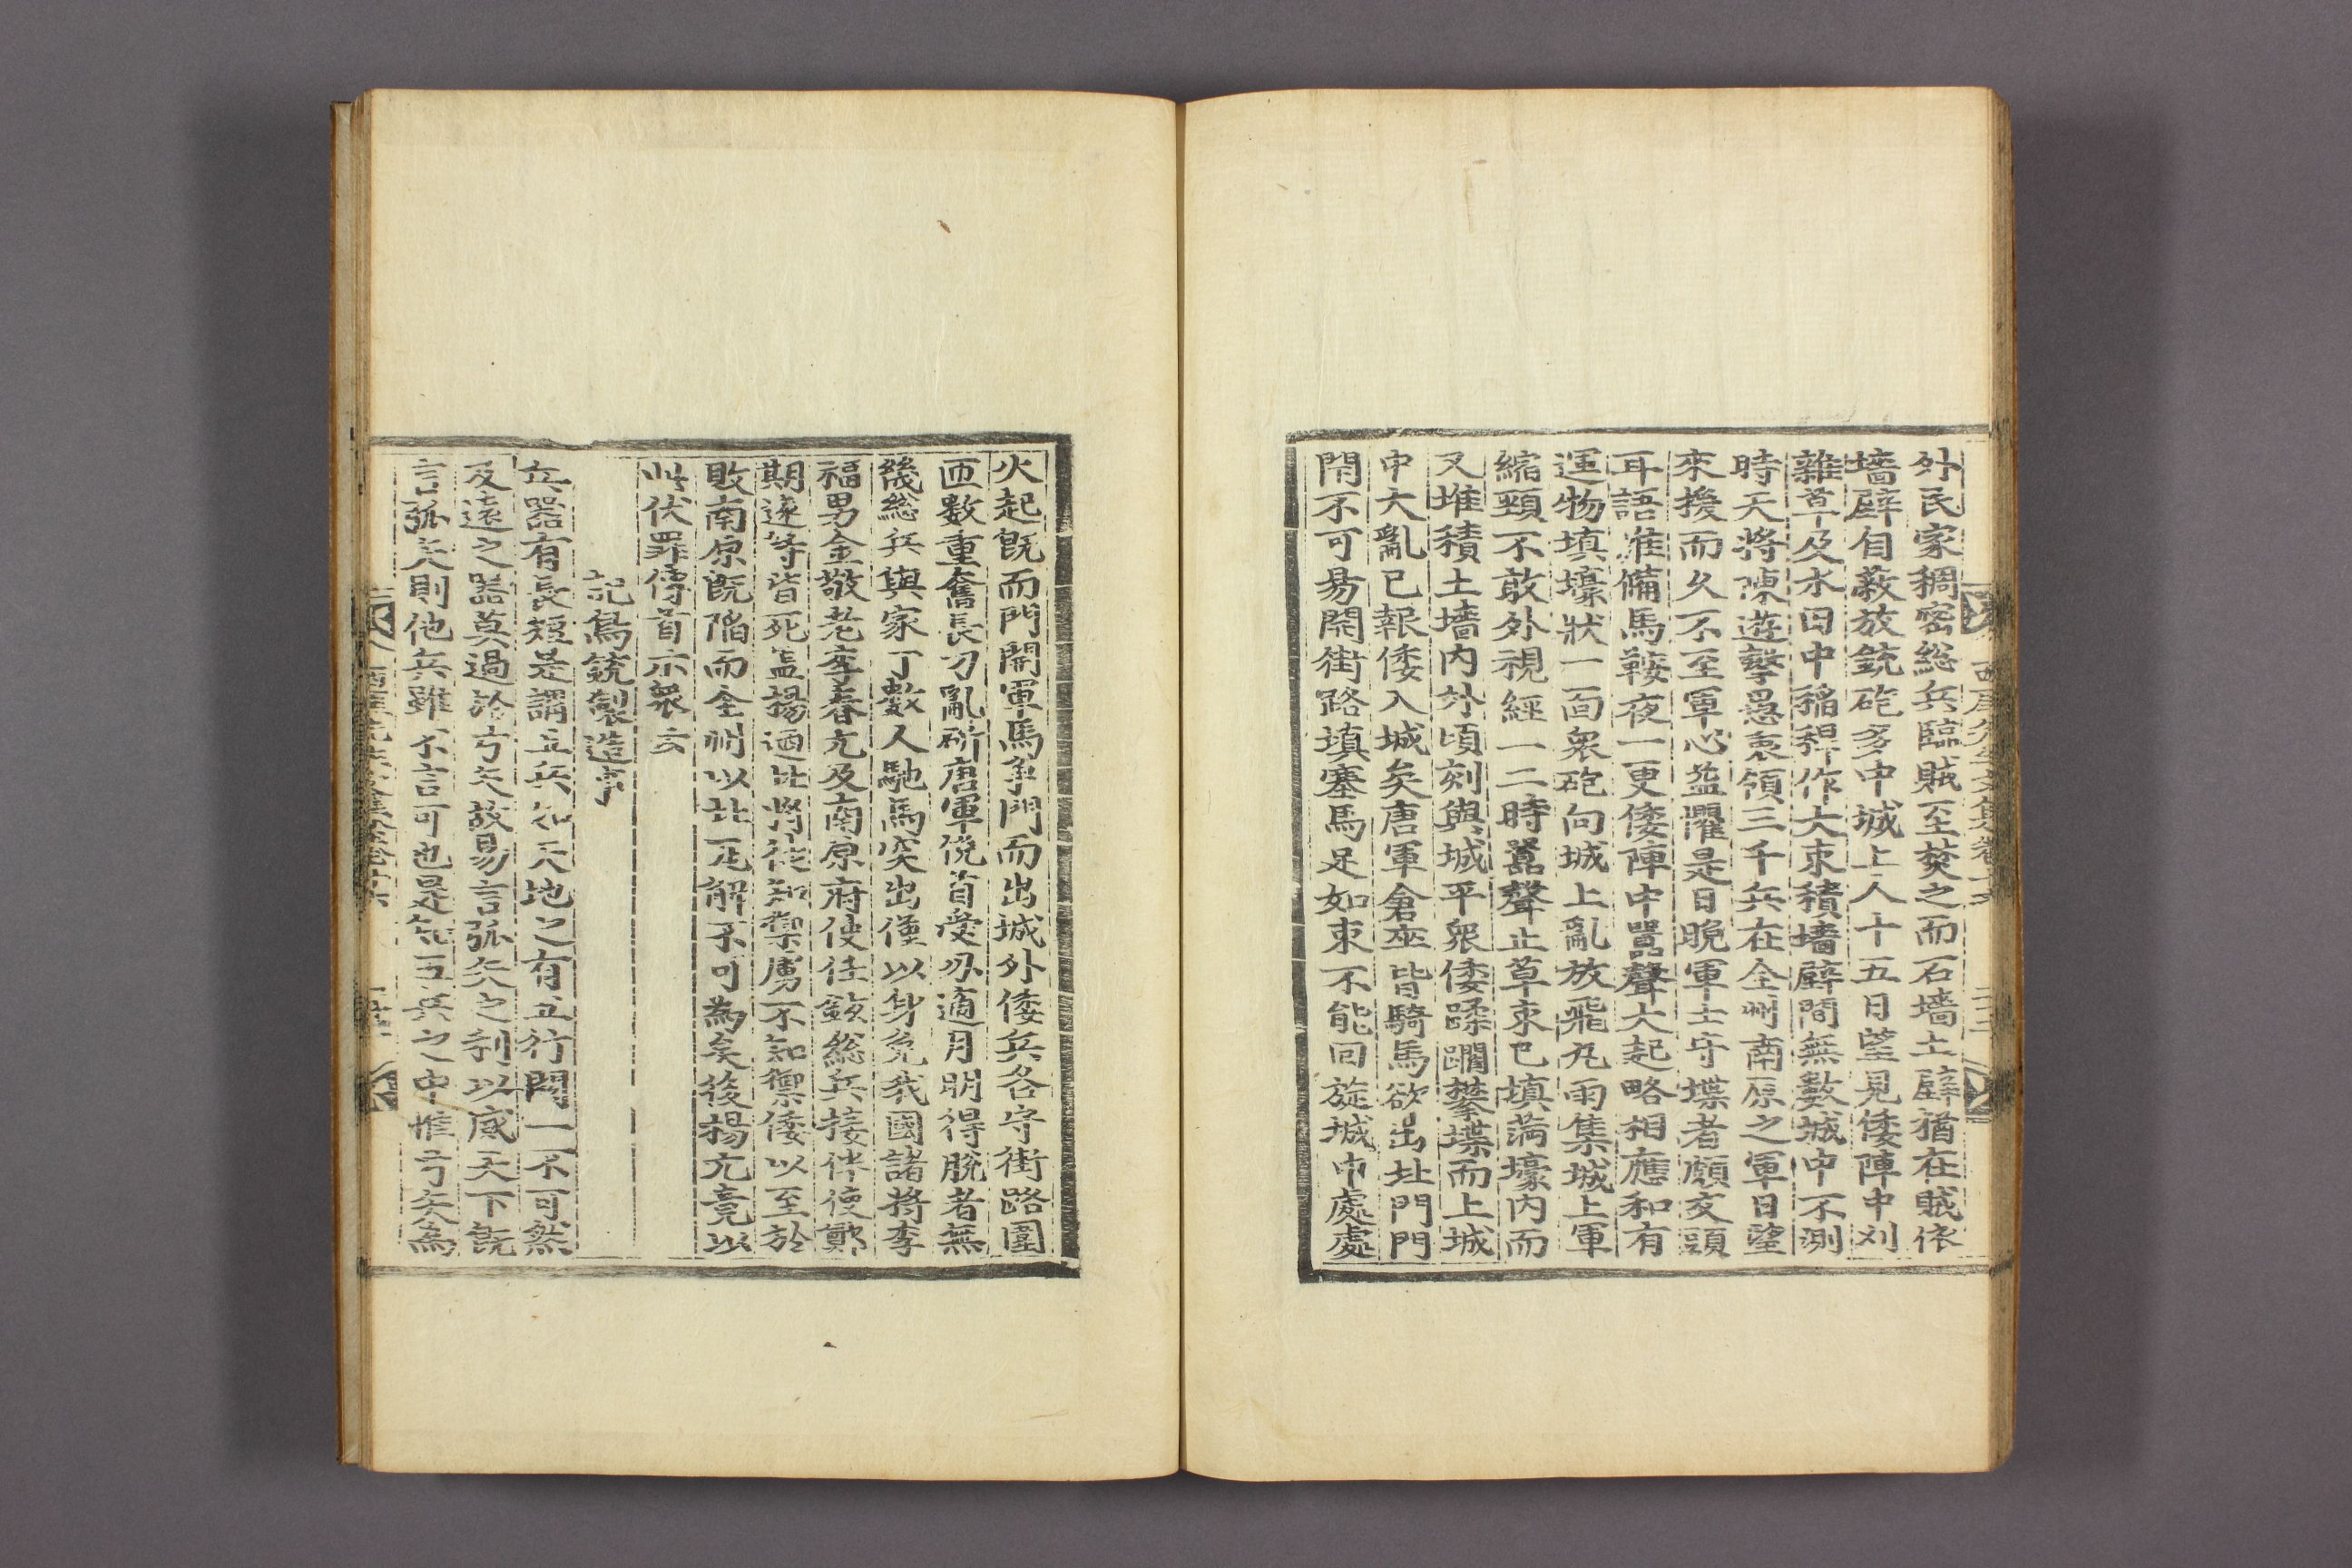 外民家稠密総兵臨賊至焚之而石墻土壁猶在賊依
墻壁自蔽放銃砲多中城上人十五日望見倭陣中刈
雜草及水田中稲稈作大束積墻壁間無數城中不測
時天將陳遊擊愚衷領三千兵在全州南原之軍日望
來援而久不至軍心益懼是日晚軍士守堞者頗交頭
耳語准備馬鞍夜一更倭陣中囂聲大起略相應和有
運物填壕狀一面衆砲向城上亂放飛丸雨集城上軍
縮頸不敢外視經一二時囂聲止草束已填滿壕內而
又堆積土墻內外頃刻與城平衆倭蹂躪攀堞而上城
中大亂已報倭入城矣唐軍倉卒皆騎馬欲出北門門
閉不可易開街路填塞馬足如束不能回旋城中處處
火起旣而門開軍馬爭門而出城外倭兵各守街路圍
匝數重奮長刀亂斫唐軍俛首受刃適月明得脫者無
幾総兵與家丁數人馳馬突出僅以身免我國諸將李
福男金敬老李春元及南原府使任鉉総兵接伴使鄭
期遠等皆死盖揚迺北將徒知禦虜不知禦倭以至於
敗南原旣陷而全州以北瓦解不可為矣後揚元竟以
此伏罪傳首示衆云
記鳥銃製造事
兵器有長短是謂五兵如天地之有五行闕一不可然
及遠之器莫過於弓矢故易言弧矢之利以威天下旣
言弧矢則他兵雖不言可也是知五兵之中惟弓矢為